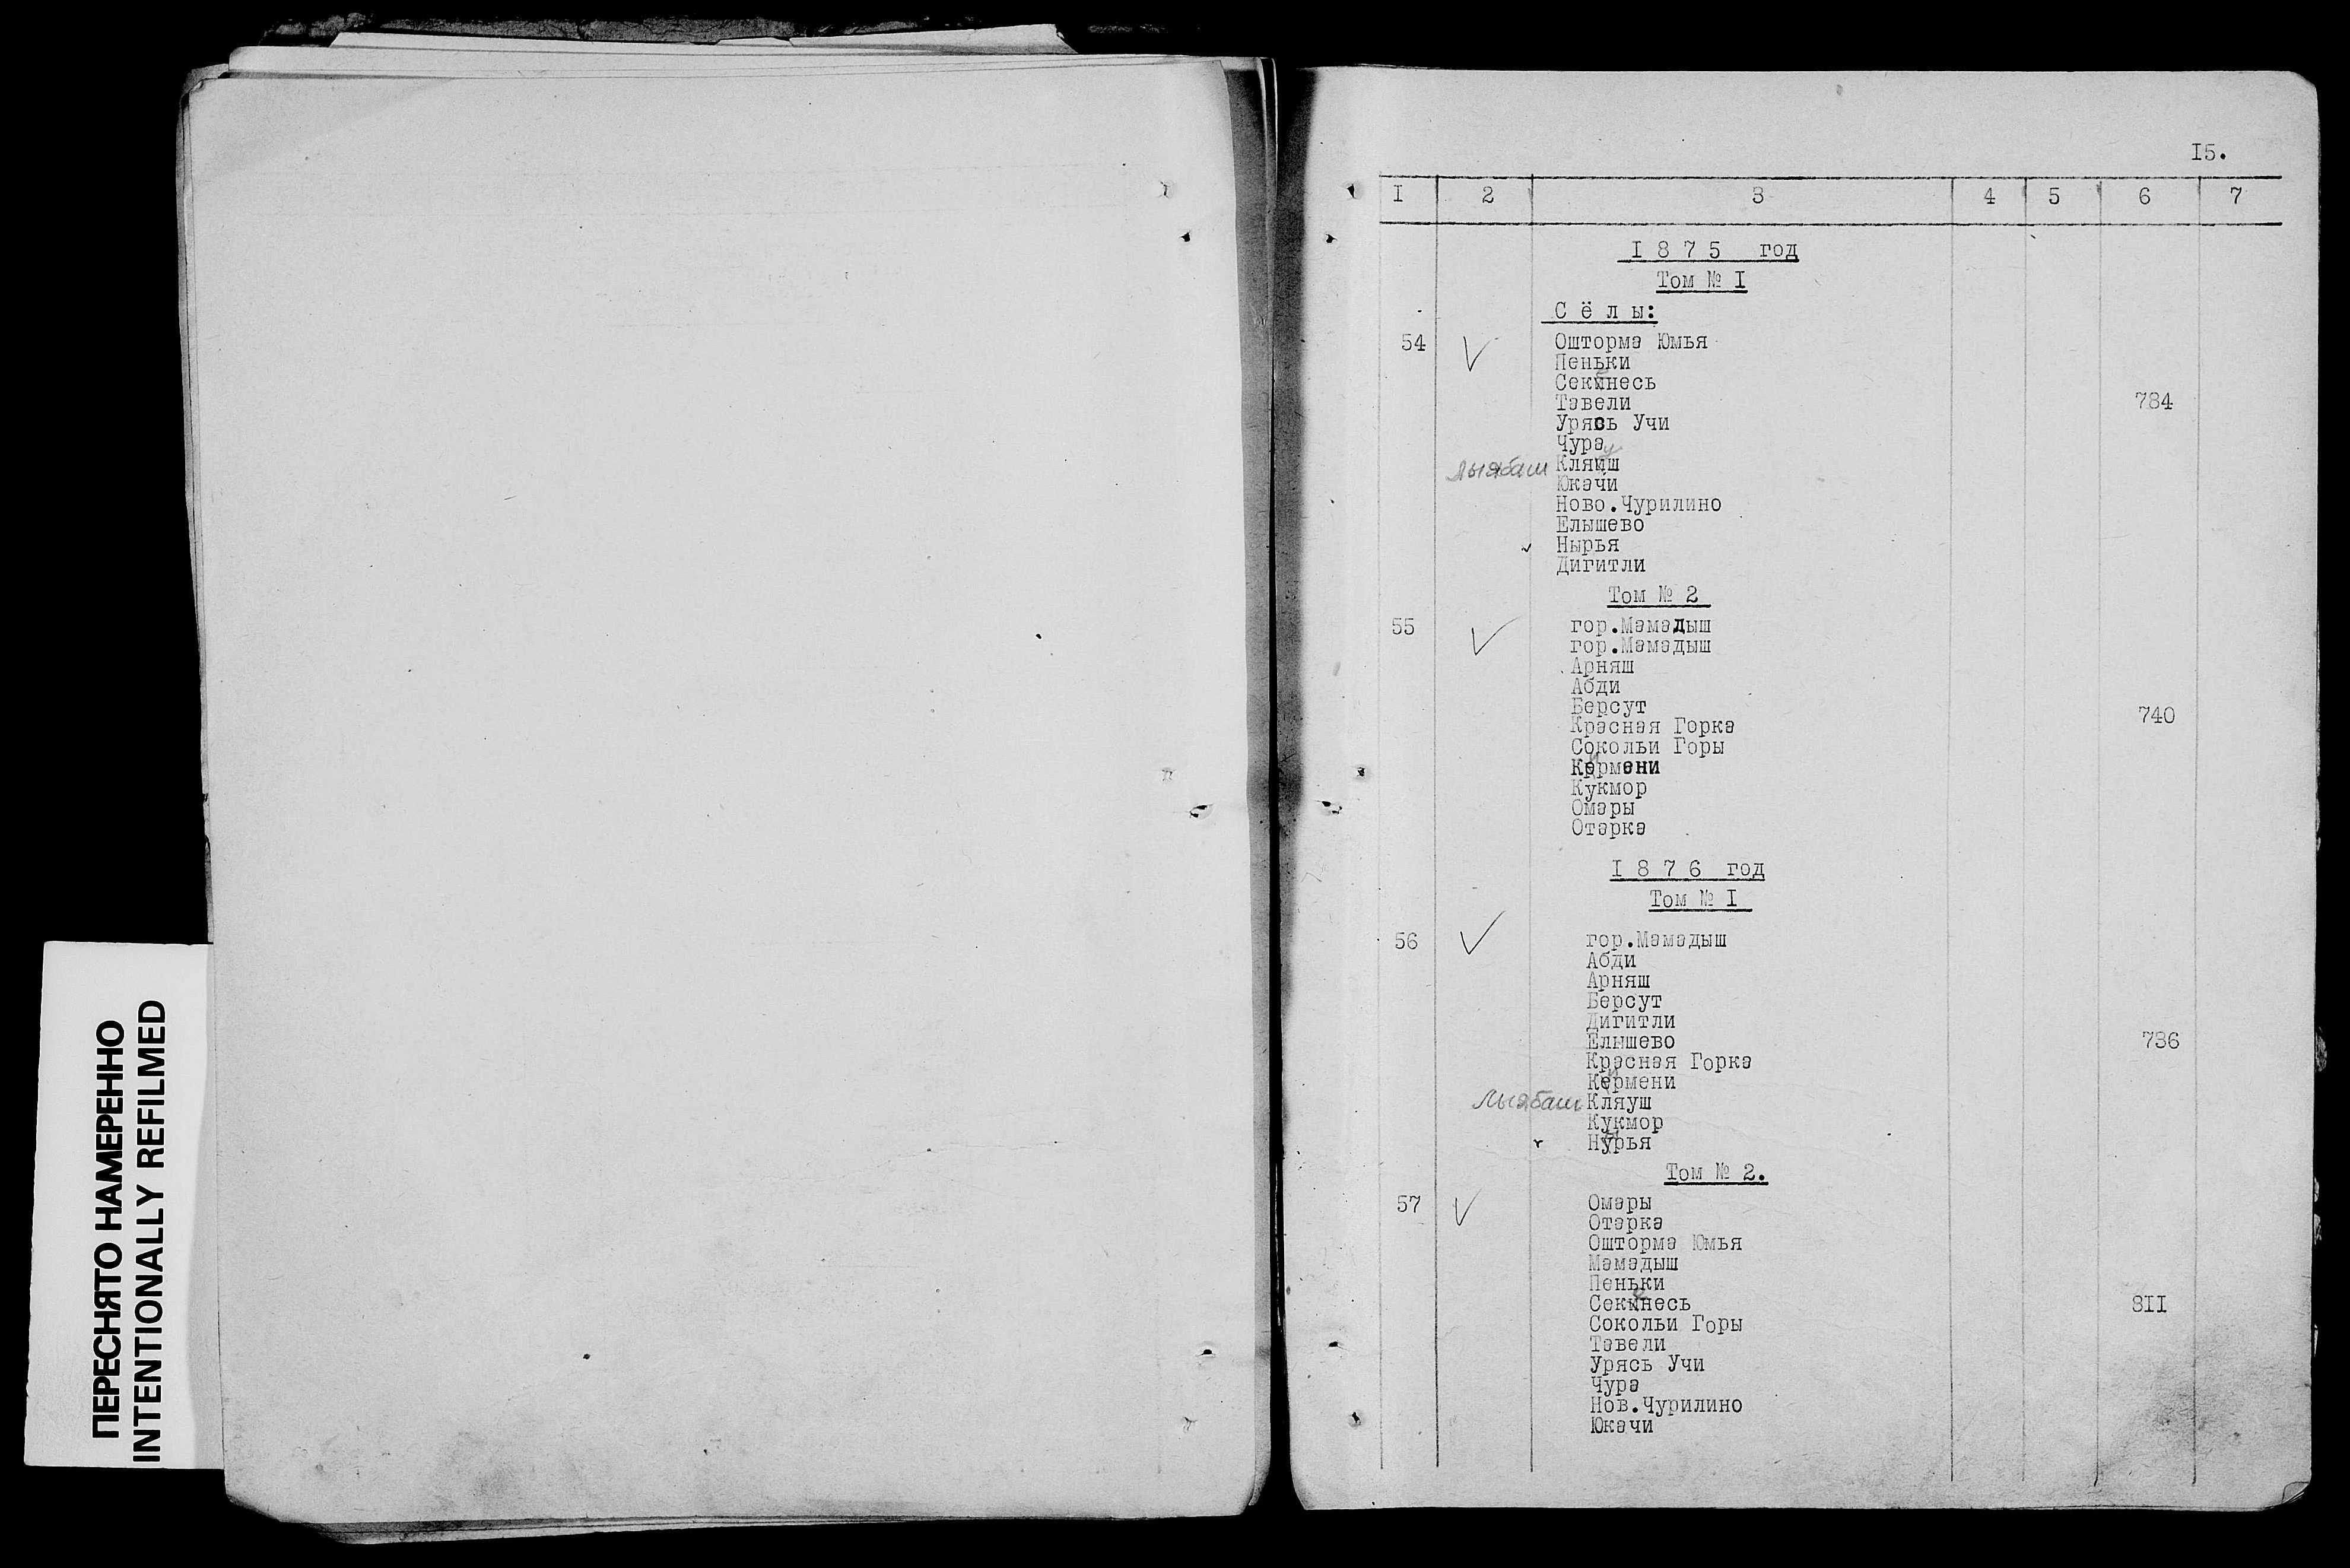 ПЕРЕСНЯТО НАМЕРЕННО
INTENTIONALLY REFILMED
I5.
I 2 3 4 5 6 7
I875 год
Том № I
Сёлы:
54 Ошторма Юмья
Пеньки
Секинесь
Тавели 784
Урясь Учи
Чура
Лыябаш Кляуш
Юкачи
Ново.Чурилино
Елышево
Нырья
Дигитли
Том № 2
55 гор.Мамадыш
гор.Мамадыш
Арняш
Абди
Берсут
Красная Горка 740
Сокольи Горы
Кермени
Кукмор
Омары
Отарка
I876 год
Том № I
56 гор.Мамадыш
Абди
Арняш
Берсут
Дигитли
Елышево 736
Красная Горка
Кермени
Лыябаш Кляуш
Кукмор
Нурья
Том № 2.
57 Омары
Отарка
Ошторма Юмья
Мамадыш
Пеньки
Секинесь 8II
Сокольи Горы
Тавели
Урясь Учи
Чура
Нов.Чурилино
Юкачи